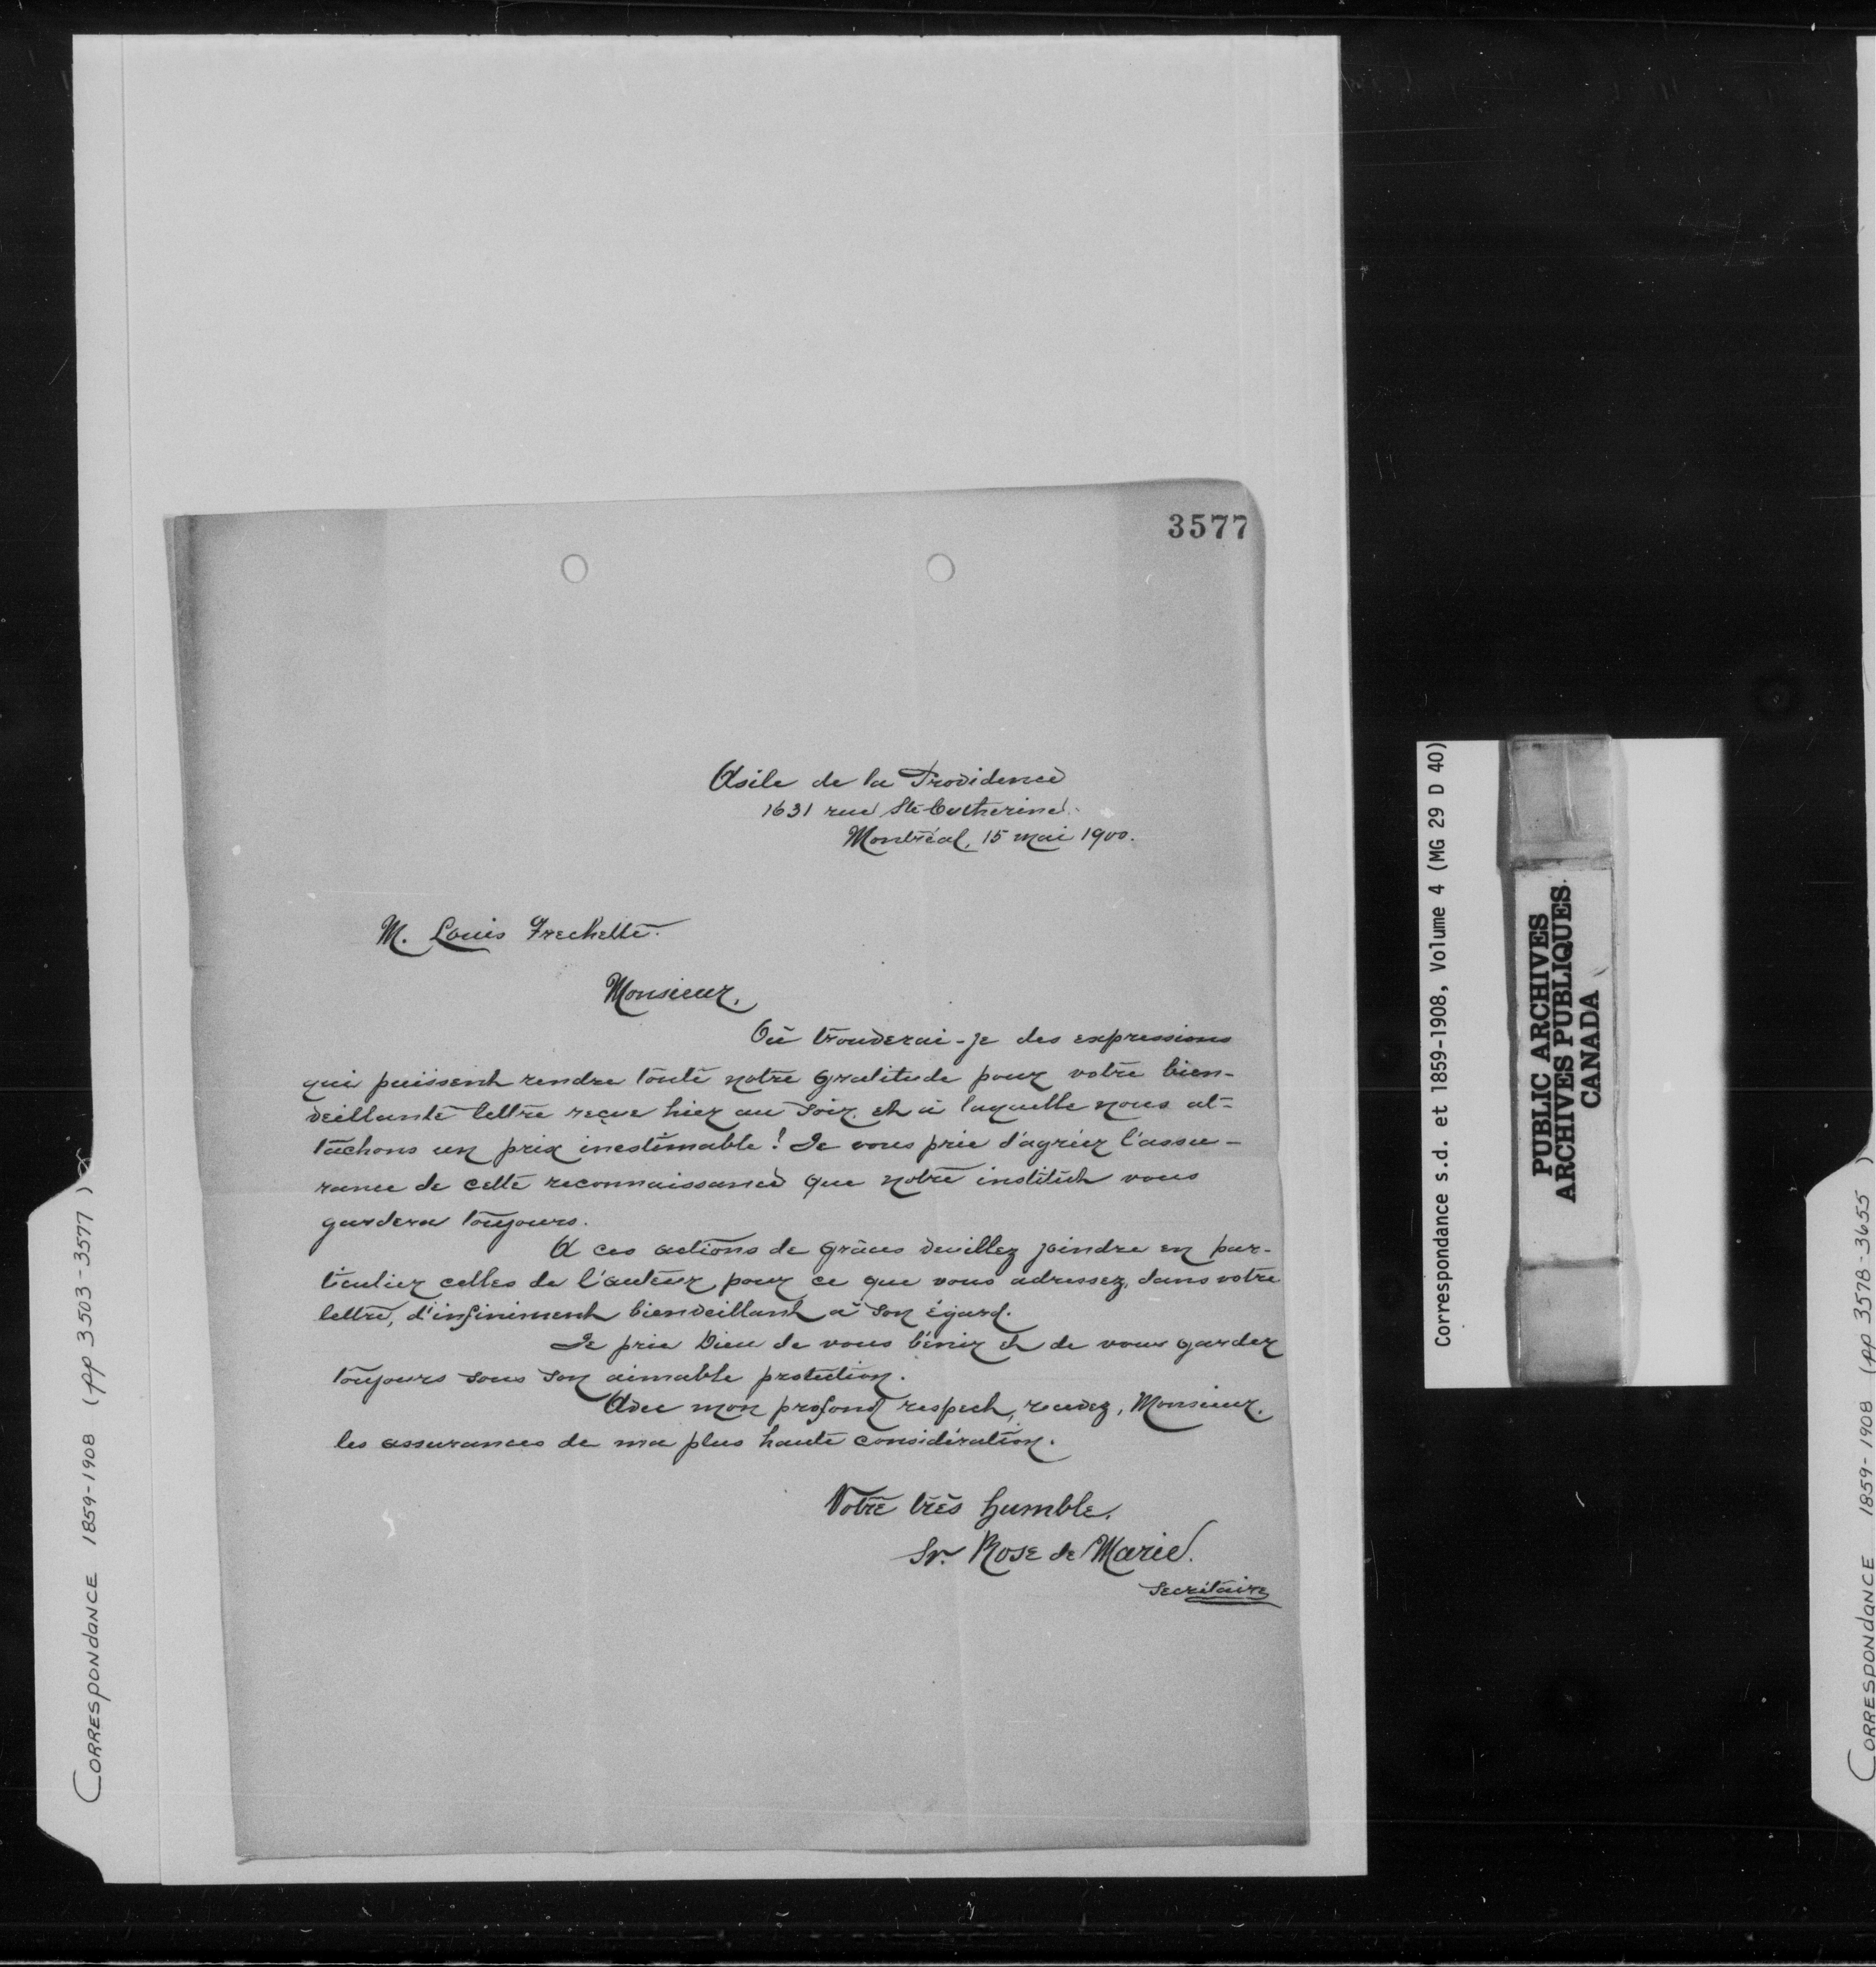 3577
Asile de la Providence
1631 rue Ste-Catherine.
Montréal, 15 mai 1900.
M. Louis Frechette.
Monsieur,
Où trouverai-je des expressions
qui puissent rendre toute notre gratitude pour votre bien-
veillante lettre reçue hier au soir, et à laquelle nous at-
tachons un prix inestimable! Je vous prie d'agréer l'assu-
rance de cette reconnaissance que notre institut vous
gardera toujours.
A ces actions de grâces veuillez joindre en par-
ticulier celles de l'auteur, pour ce que vous adressez, dans votre
lettre, d'infiniment bienveillant à son égard.
Je prie Dieu de vous bénir et de vous garder
toujours sous son aimable protection.
Avec mon profond respect, recevez, Monsieur,
les assurances de ma plus haute considération.
Votre très humble,
Sr. Rose de Marie.
Secrétaire
CORRESPONDANCE 1859-1908 (pp 3503-3577)
Correspondance s.d. et 1859-1908, Volume 4 (MG 29 D 40)
PUBLIC ARCHIVES
ARCHIVES PUBLIQUES
CANADA
CORRESPONDANCE 1859-1908 (pp 3578-3655)